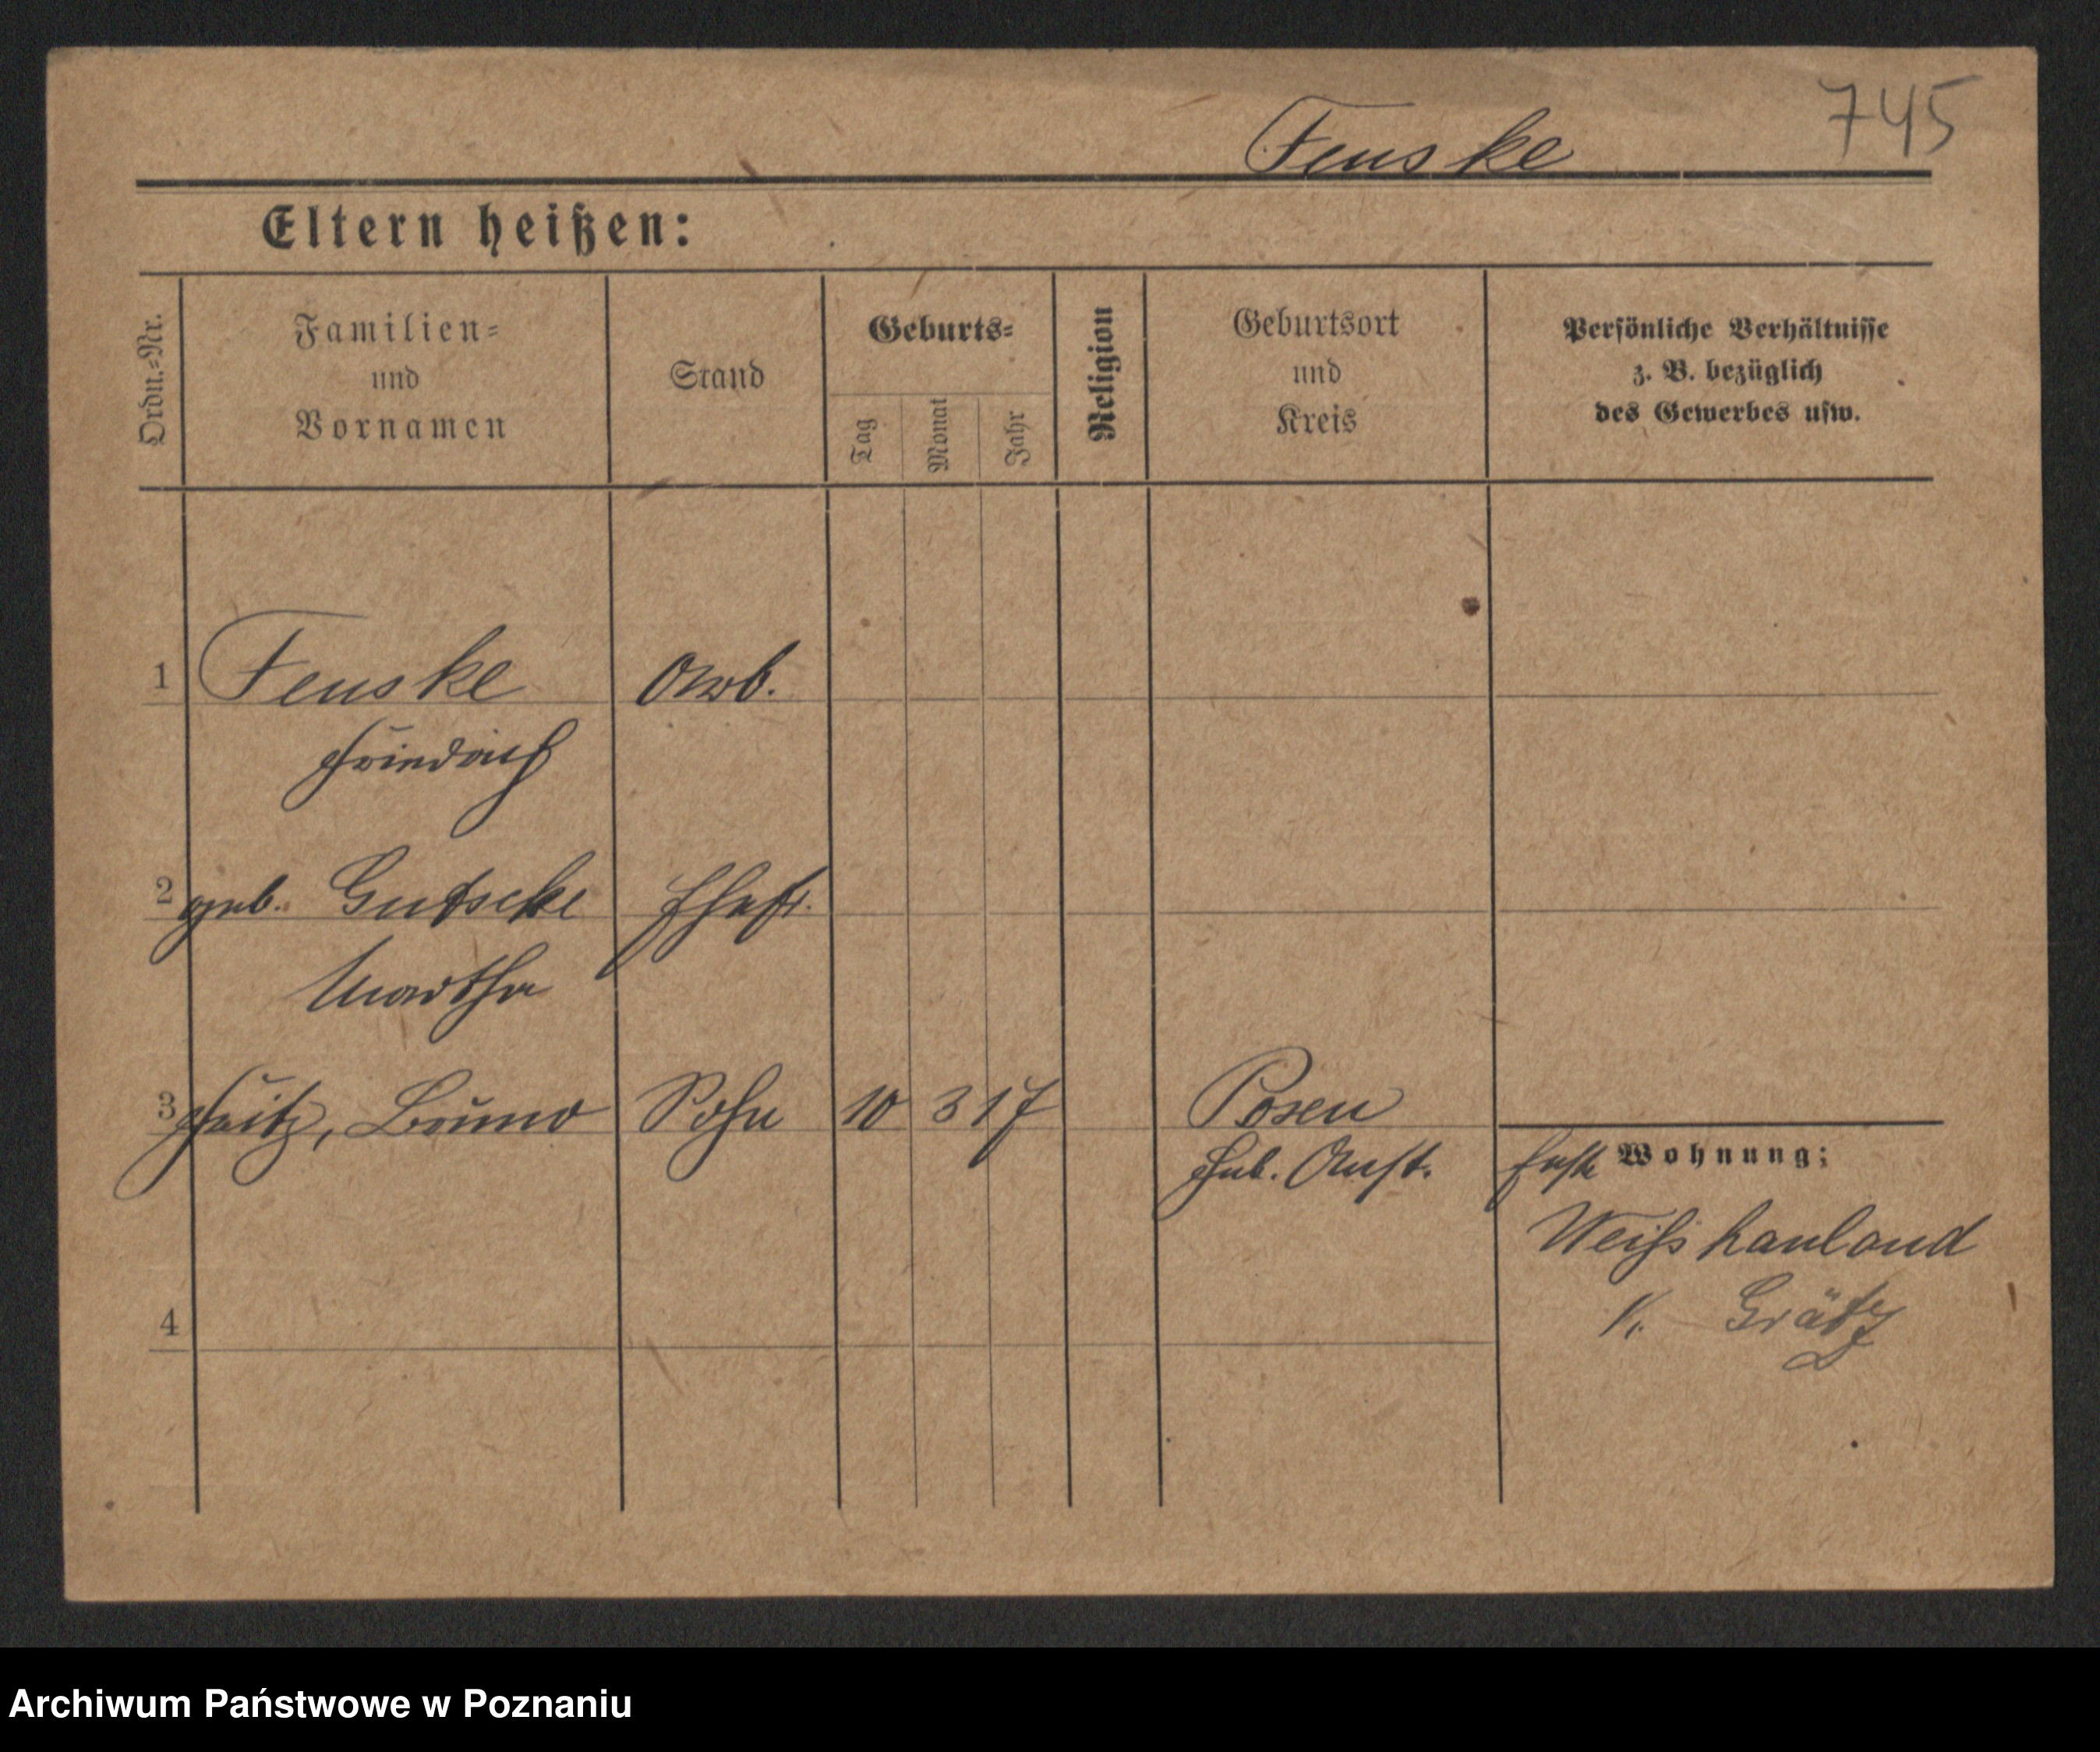 745
Fenske
Eltern heißen:
Ordn.=Nr.
Familien=
und
Vornamen
Stand
Geburts=
Tag
Monat
Jahr
Religion
Geburtsort
und
Kreis
Persönliche Verhältnisse
z. B. bezüglich
des Gewerbes usw.
1 Fenske Arb.
Friedrich
2 geb. Gutscke Ehefr.
Martha
3 Fritz, Bruno Sohn 10 3 17 Posen
Heb. Anst.
Wohnung:
Weiss hauland
K. Grätz
4
Archiwum Państwowe w Poznaniu